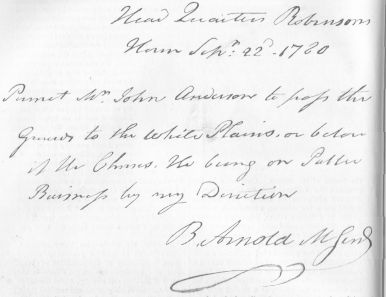 Head Quarters Robinsons
House Sepr. 22d. 1780
Permit Mr. John Anderson to pass the
Guards to the White Plains, or below
if He Chuses. He being on Public
Buisness by my Direction
B. Arnold M Genl